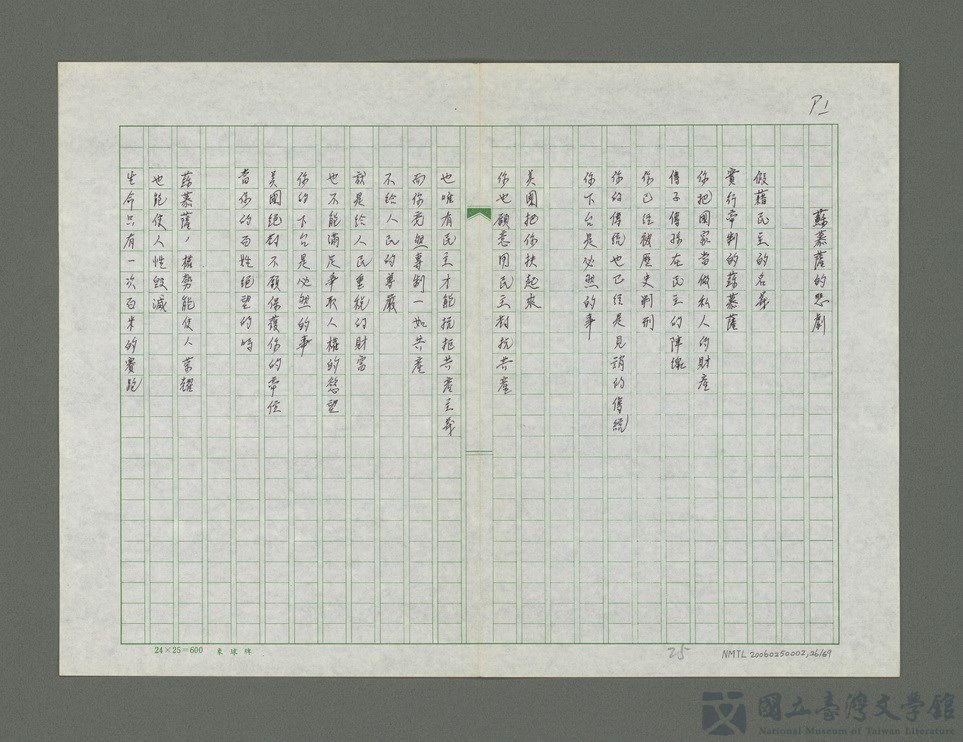 P1
蘇慕薩的悲劇
假藉民主的名義
實行帝制的蘇慕薩
你把國家當做私人的財產
傳子傳孫在民主的陣線
你已經被歷史判刑
你的傳統也已經是見銷的傳統
你下台是必然的事
美國把你扶起來
你也願意用民主對抗共產
也唯有民主才能抗拒共產主義
而你竟然專制一如共產
不給人民的尊嚴
就是給人民重稅的財富
也不能滿足爭取人權的慾望
你的下台是必然的事
美國絕對不願保護你的帝位
當你的百姓絕望的時
蘇慕薩，權勢能使人榮耀
也能使人性毀滅
生命只有一次百米的賽跑
24×25=600 東球牌
25
NMTL 20060250002,26/69
國立臺灣文學館
National Museum of Taiwan Literature